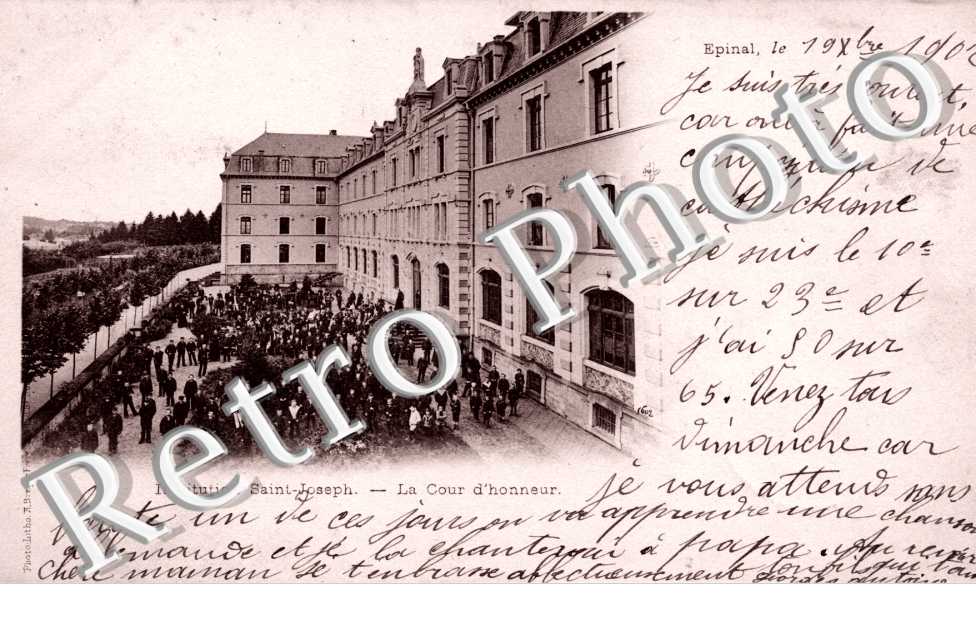 Epinal, le 19 Xbre 190
Je suis très content,
car on a fait une
de
catéchisme
je suis le 10e
sur 23e et
j'ai 50 sur
65. Venez
dimanche car
je vous attends sans
faute un de ces jours on va apprendre une chanson
allemande et je la chanterai à papa. Au revoir
Chère maman je t'embrasse affectueusement ton fils qui t'aime
Georges Antoine
1602
Institution Saint-Joseph. — La Cour d'honneur.
Photo-Litho. A.B.
Retro Photo